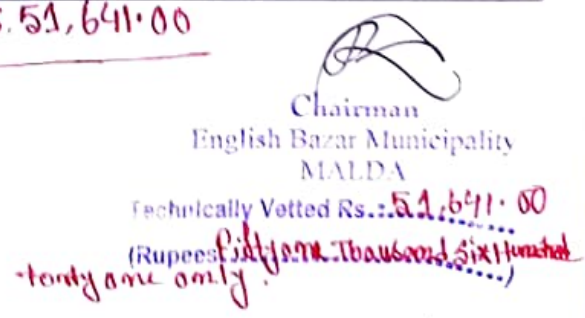 : 51,641.00
Chairman
English Bazar Municipality
MALDA
Technically Vetted Rs.: 51,641.00
(Rupees Fiftyone Thousand Six Hundred
fourty one only.)